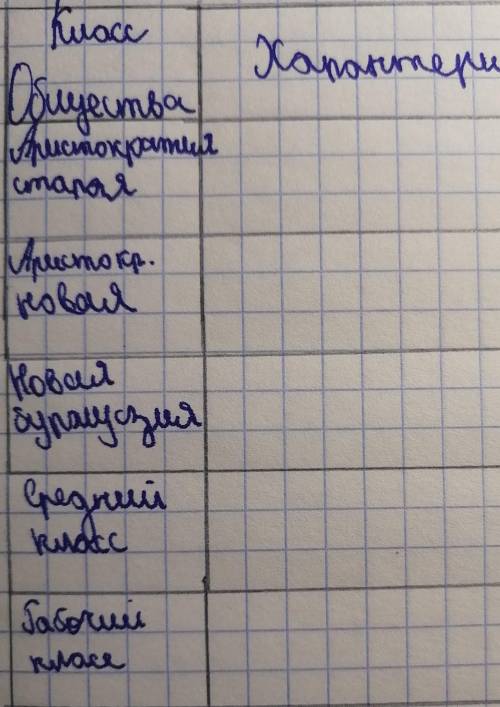 Класс
Характери
Общества
Аристократия
старая
Аристокр.
новая
Новая
буржуазия
Средний
класс
Рабочий
класс